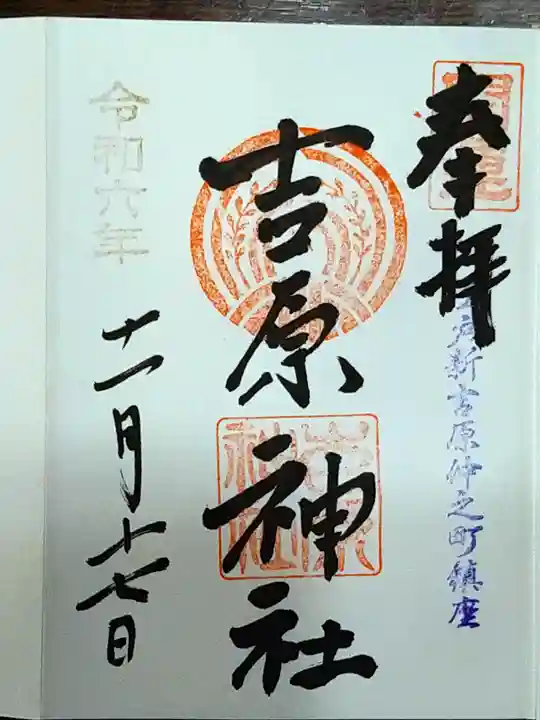 奉拝
戸新吉原仲之町鎮座
吉原神社
令和六年
十一月十七日